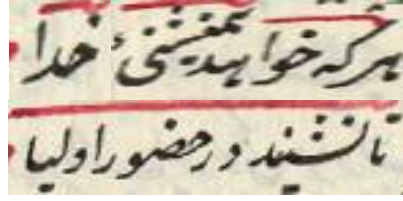 هر که خواهد همنشینیٔ خدا
تا نشیند در حضور اولیا